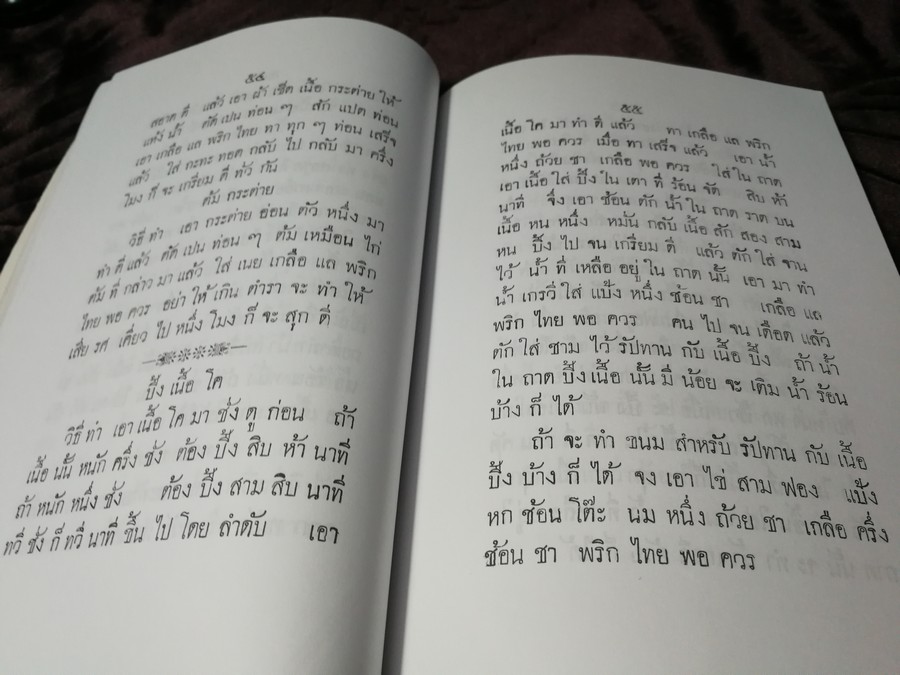 ๕๔
สอาด ดี แล้ว เอา ผ้า เช็ด เนื้อ กระต่าย ให้
แห้ง น้ำ ตัด เปน ท่อน ๆ สัก แปด ท่อน
เอา เกลือ แล พริก ไทย ทา ทุก ๆ ท่อน เสร็จ
แล้ว ใส่ กะทะ ทอด กลับ ไป กลับ มา ครึ่ง
โมง ก็ จะ เกรียม ดี ทั่ว กัน
ต้ม กระต่าย
วิธี ทำ เอา กระต่าย อ่อน ตัว หนึ่ง มา
ทำ ดี แล้ว ตัด เปน ท่อน ๆ ต้ม เหมือน ไก่
ต้ม ที่ กล่าว มา แล้ว ใส่ เนย เกลือ แล พริก
ไทย พอ ควร อย่า ให้ เกิน ตำรา จะ ทำ ให้
เสีย รศ เคี่ยว ไป หนึ่ง โมง ก็ จะ สุก ดี
ปิ้ง เนื้อ โค
วิธี ทำ เอา เนื้อ โค มา ชั่ง ดู ก่อน ถ้า
เนื้อ นั้น หนัก ครึ่ง ชั่ง ต้อง ปิ้ง สิบ ห้า นาที
ถ้า หนัก หนึ่ง ชั่ง ต้อง ปิ้ง สาม สิบ นาที
ทวี ชั่ง ก็ ทวี นาที ขึ้น ไป โดย ลำดับ เอา
๕๕
เนื้อ โค มา ทำ ดี แล้ว ทา เกลือ แล พริก
ไทย พอ ควร เมื่อ ทา เสร็จ แล้ว เอา น้ำ
หนึ่ง ถ้วย ชา เกลือ พอ ควร ใส่ ใน ถาด
เอา เนื้อ ใส่ ปิ้ง ใน เตา ที่ ร้อน จัด สิบ ห้า
นาที จึ่ง เอา ช้อน ตัก น้ำ ใน ถาด ราด บน
เนื้อ หน หนึ่ง หมั่น กลับ เนื้อ สัก สอง สาม
หน ปิ้ง ไป จน เกรียม ดี แล้ว ตัก ใส่ จาน
ไว้ น้ำ ที่ เหลือ อยู่ ใน ถาด นั้น เอา มา ทำ
น้ำ เกรวี่ ใส่ แป้ง หนึ่ง ช้อน ชา เกลือ แล
พริก ไทย พอ ควร คน ไป จน เดือด แล้ว
ตัก ใส่ ชาม ไว้ รัปทาน กับ เนื้อ ปิ้ง ถ้า น้ำ
ใน ถาด ปิ้ง เนื้อ นั้น มี น้อย จะ เติม น้ำ ร้อน
บ้าง ก็ ได้
ถ้า จะ ทำ ขนม สำหรับ รัปทาน กับ เนื้อ
ปิ้ง บ้าง ก็ ได้ จง เอา ไข่ สาม ฟอง แป้ง
หก ช้อน โต๊ะ นม หนึ่ง ถ้วย ชา เกลือ ครึ่ง
ช้อน ชา พริก ไทย พอ ควร